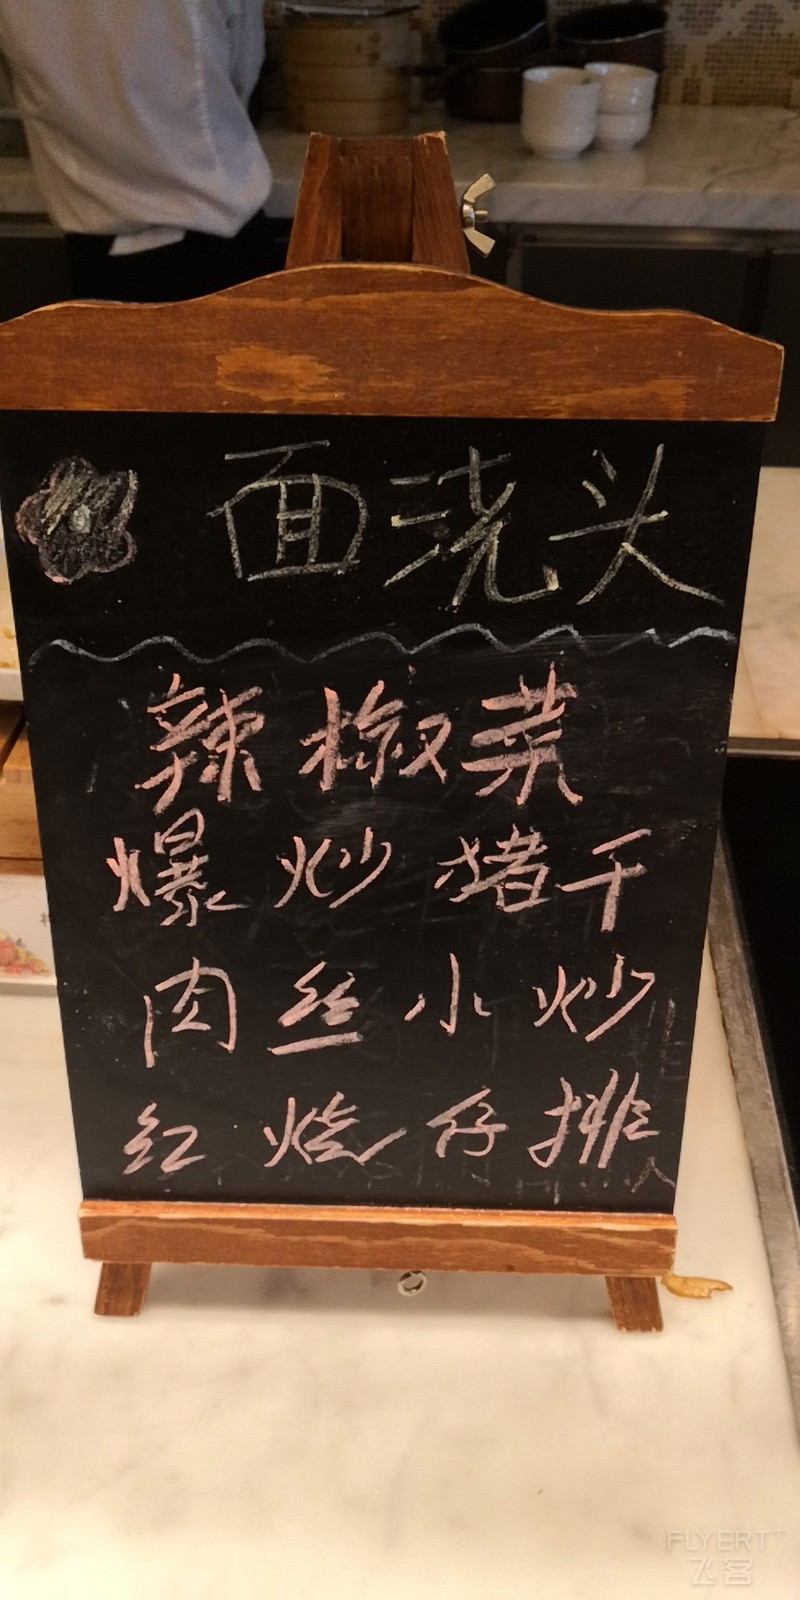 面浇头
辣椒菜
爆炒猪干
肉丝小炒
红烧仔排
FLYERT+
飞客